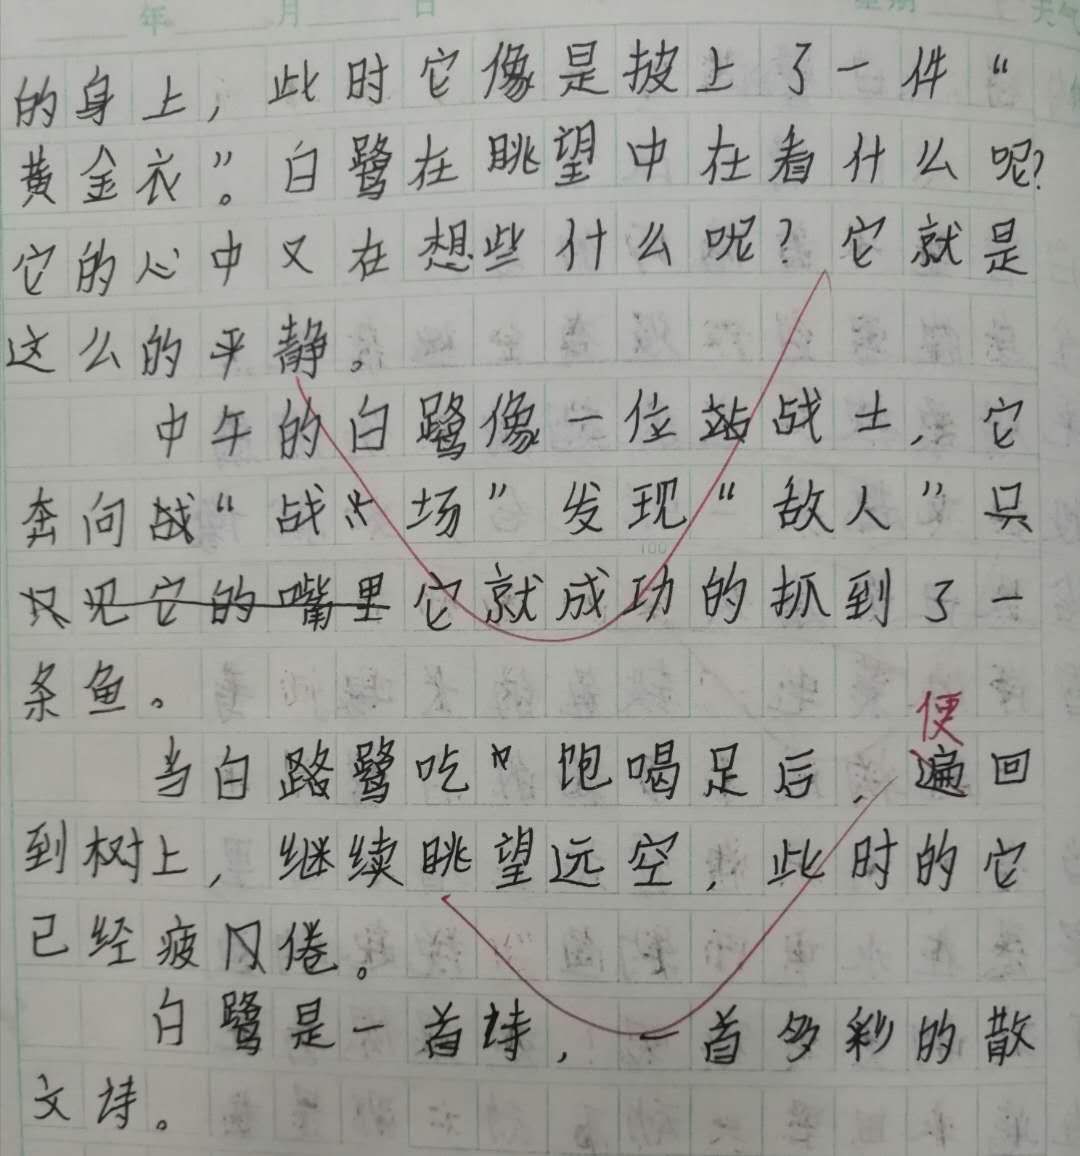 年 月 日 星期 天气
的身上，此时它像是披上了一件“
黄金衣”。白鹭在眺望中在看什么呢？
它的心中又在想些什么呢？它就是
这么的平静。
中午的白鹭像一位站战士，它
奔向战“战“场”发现“敌人”只
只见它的嘴里它就成功的抓到了一
条鱼。
便
当白路鹭吃饱喝足后，遍回
到树上，继续眺望远空，此时的它
已经疲倦。
白鹭是一首诗，一首多彩的散
文诗。